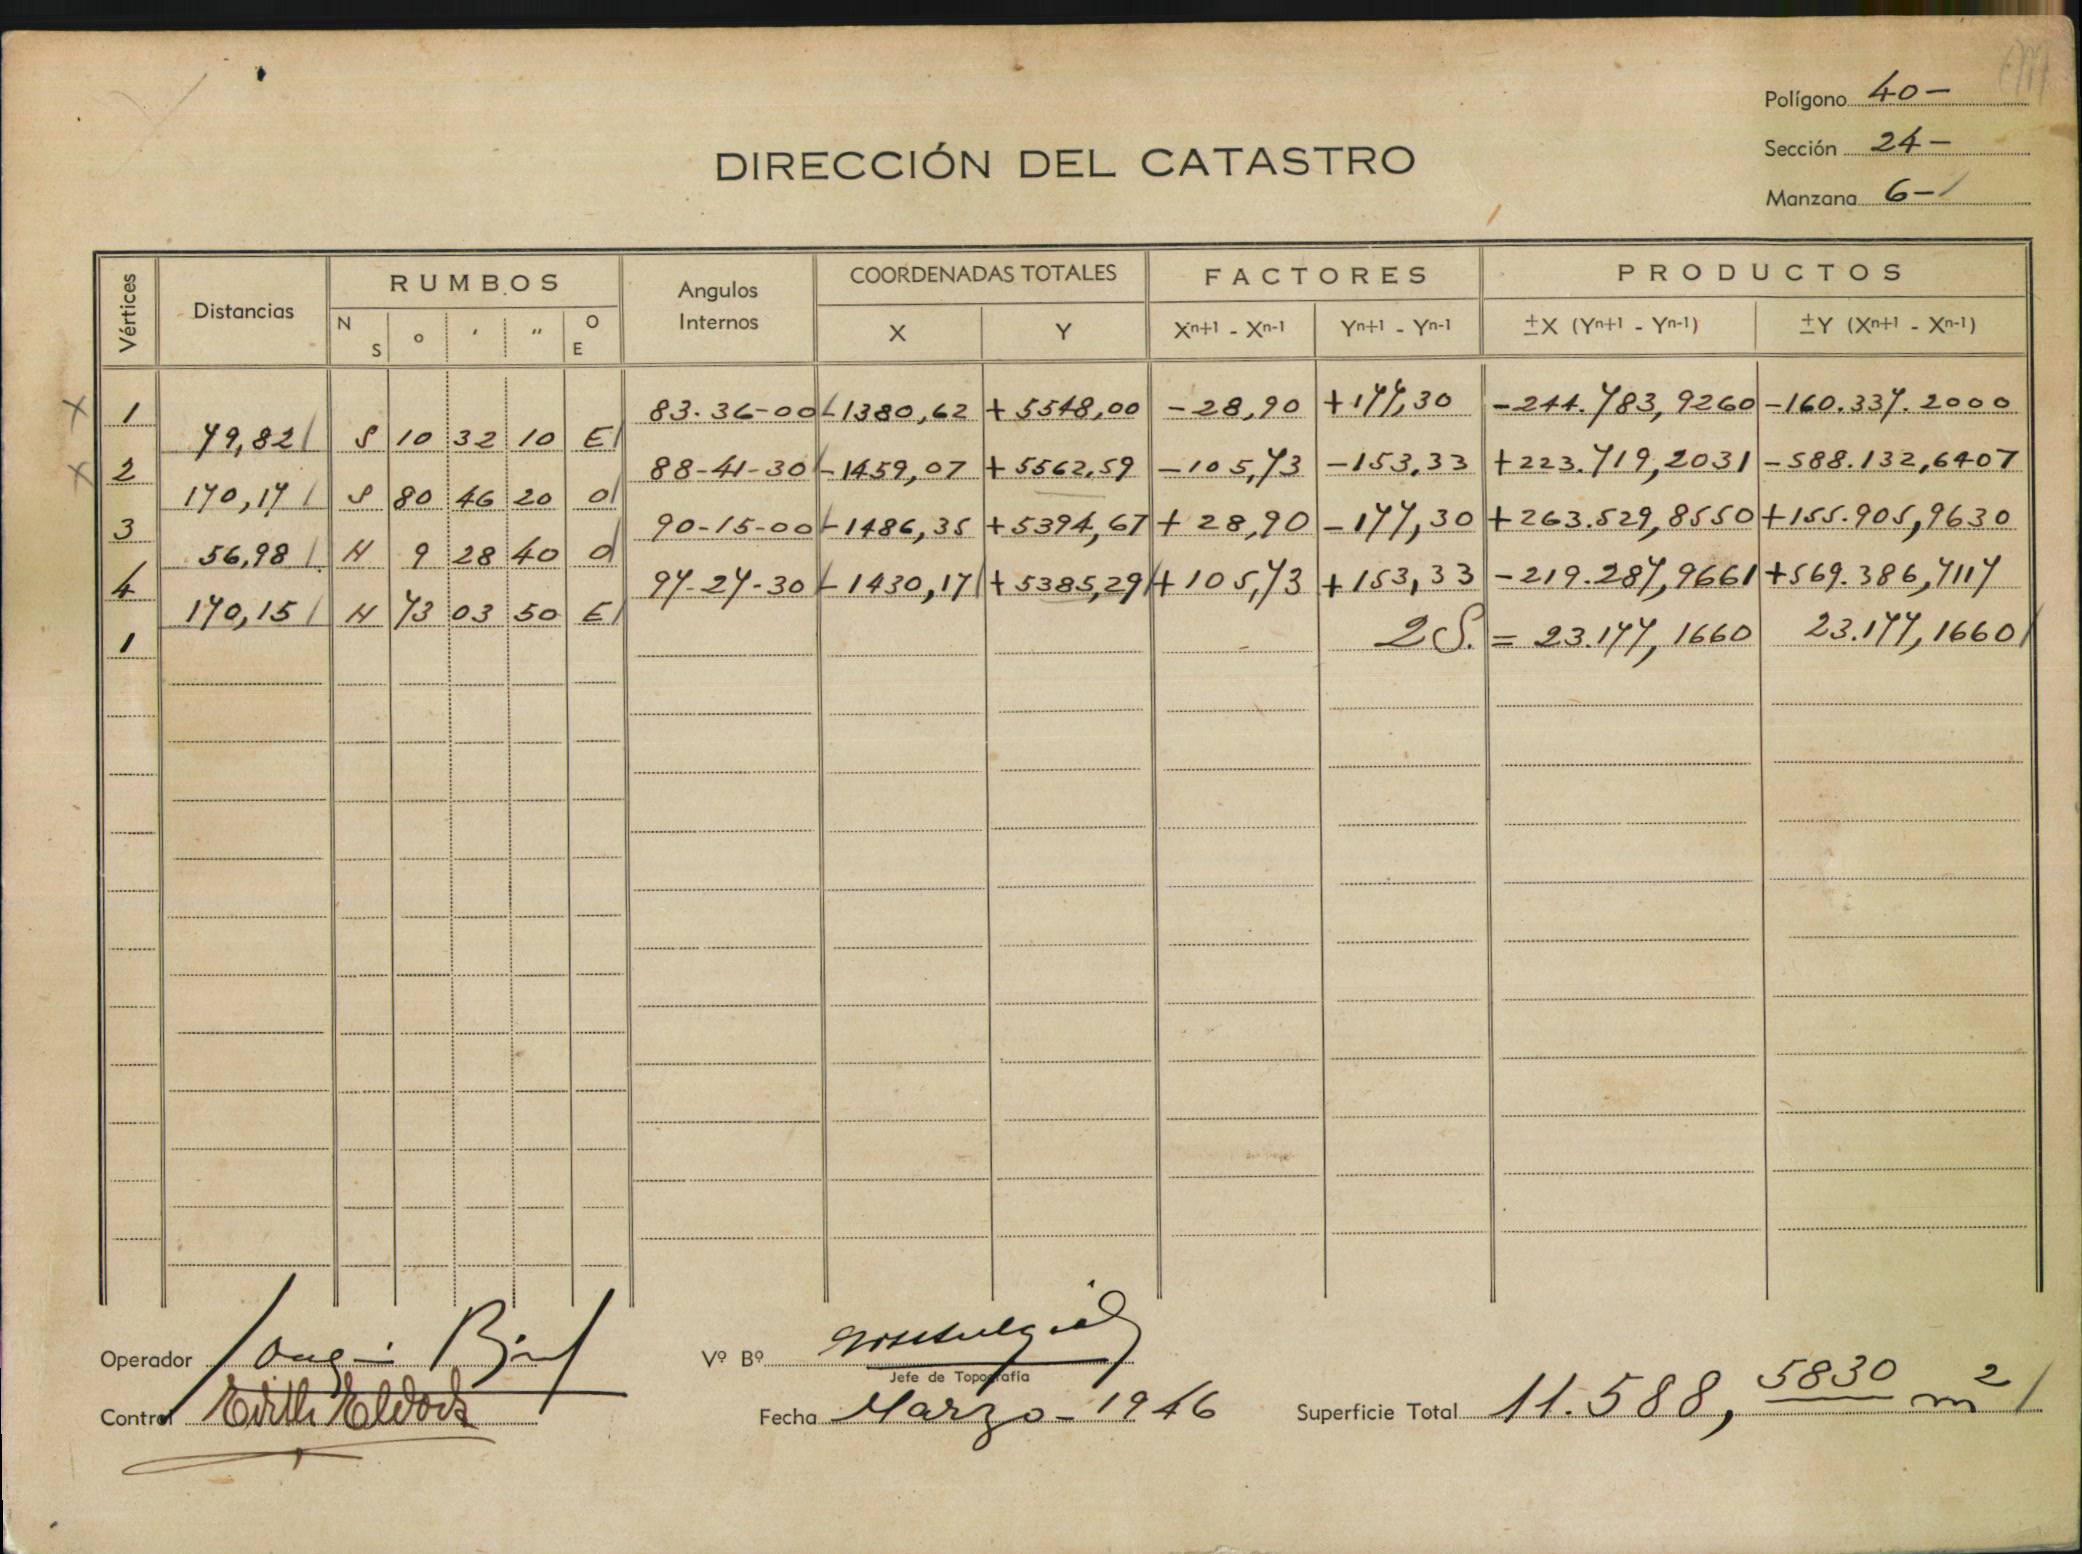 Polígono 40-
Sección 24-
Manzana 6-
DIRECCIÓN DEL CATASTRO
Vértices Distancias RUMBOS Angulos Internos COORDENADAS TOTALES FACTORES PRODUCTOS
N S o ' " O E X Y Xn+1 - Xn-1 Yn+1 - Yn-1 ±X (Yn+1 - Yn-1) ±Y (Xn+1 - Xn-1)
1 83-36-00 -1380,62 +5548,00 -28,90 +177,30 -244.783,9260 -160.337.2000
79,82 S 10 32 10 E
2 88-41-30 -1459,07 +5562,59 -105,73 -153,33 +223.719,2031 -588.132,6407
170,17 S 80 46 20 O
3 90-15-00 -1486,35 +5394,67 +28,90 -177,30 +263.529,8550 +155.905,9630
56,98 N 9 28 40 O
4 97-27-30 -1430,17 +5385,29 +105,73 +153,33 -219.287,9661 +569.386,7117
170,15 N 73 03 50 E
1 2S. = 23.177,1660 23.177,1660
Operador
Vº Bº
Jefe de Topografía
Control Edith
Fecha Marzo-1946
Superficie Total 11.588,5830 m2